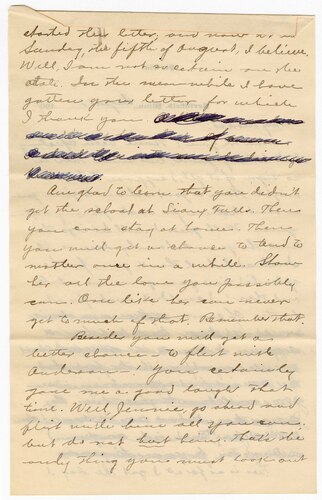 started this letter, and now it is
Sunday, the fifth of August, I believe.
Well, I am not so certain on the
date. In the mean while I have
gotten your letter for which
I thank you
Am glad to learn that you didn't
get the school at Sioux Falls. Then
you can stay at home. Then
you will get a chance to tend to
mother once in a while. Show
her all the love you possibly
can. One like her can never
get to much of that. Remember that.
Besides you will get a
better chance to flirt with
Anderson! You certainly
gave me a good laugh that
time. Well Jennie, go ahead and
flirt with him all you can,
but do not hurt him. That's the
only thing you must look out